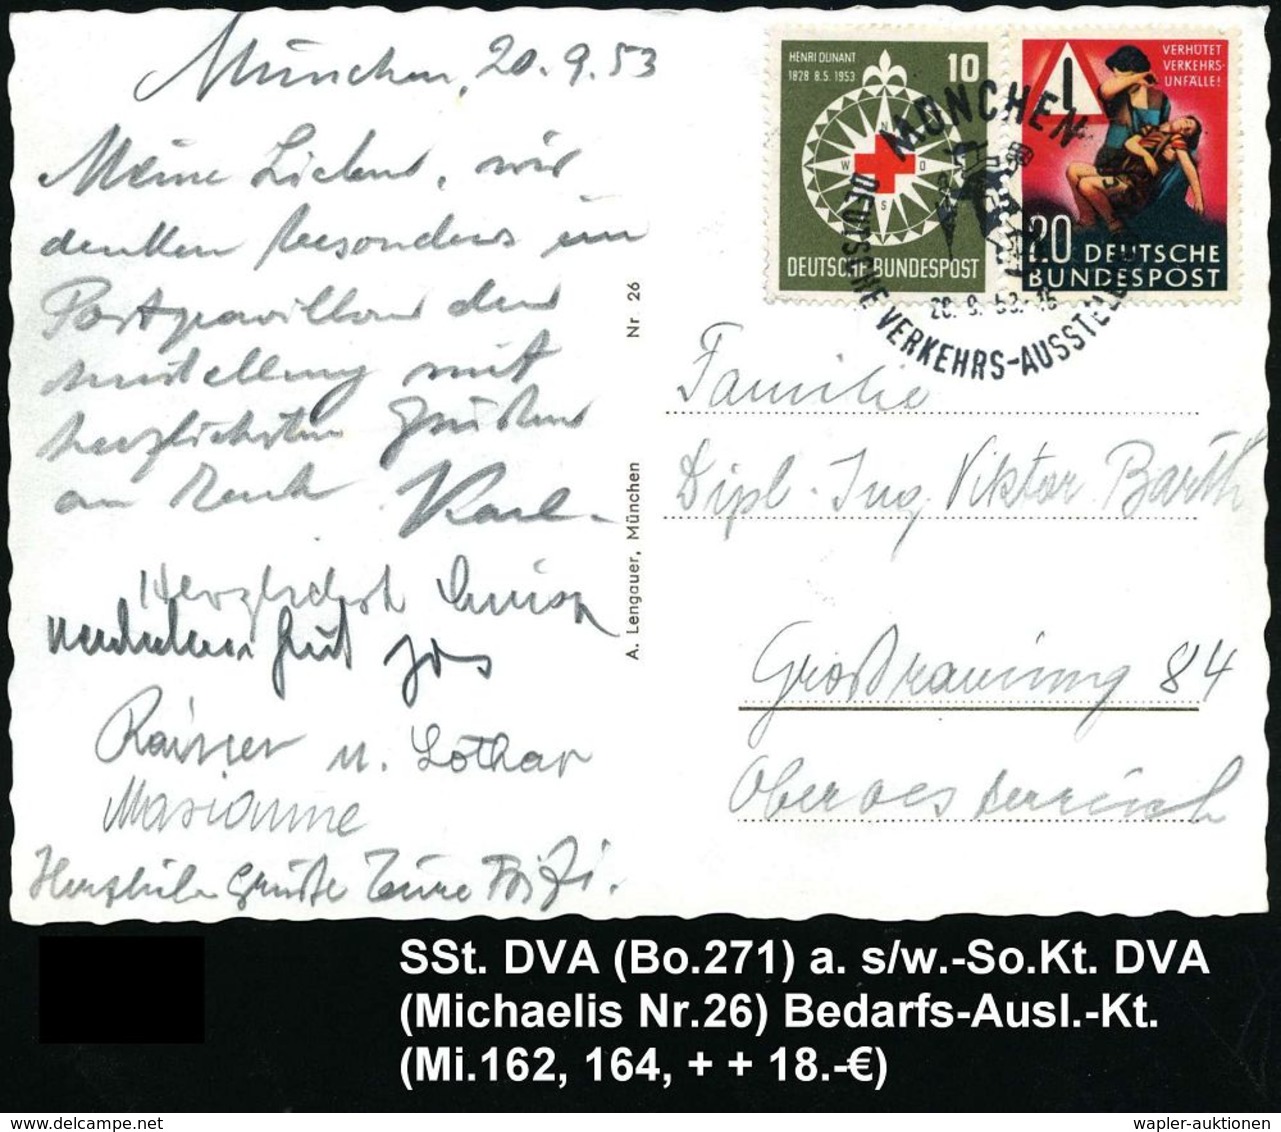 München, 20.9.53
Meine Lieben, wir
denken besonders im
Postpavillon der
Ausstellung mit
herzlichsten Grüßen
an Euch Karl
Herzlichst Luise
Rainer u. Lothar
Marianne
Herzliche Grüße Eure
A. Lengauer, München Nr 26
HENRI DUNANT
1828 8.5.1953
10
N
W O
S
DEUTSCHE BUNDESPOST
VERHÜTET
VERKEHRS-
UNFÄLLE!
20 DEUTSCHE
BUNDESPOST
MÜNCHEN
20.9.53
DEUTSCHE VERKEHRS-AUSSTELLUNG
Familie
Dipl. Ing. Viktor Barth
Großraming 84
Oberoesterreich
SSt. DVA (Bo.271) a. s/w.-So.Kt. DVA
(Michaelis Nr.26) Bedarfs-Ausl.-Kt.
(Mi.162, 164, + + 18.-€)
wapler-auktionen